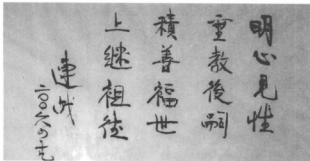 明心見性
垂教後嗣
積善福世
上繼祖德
連戰
二〇〇六四十九